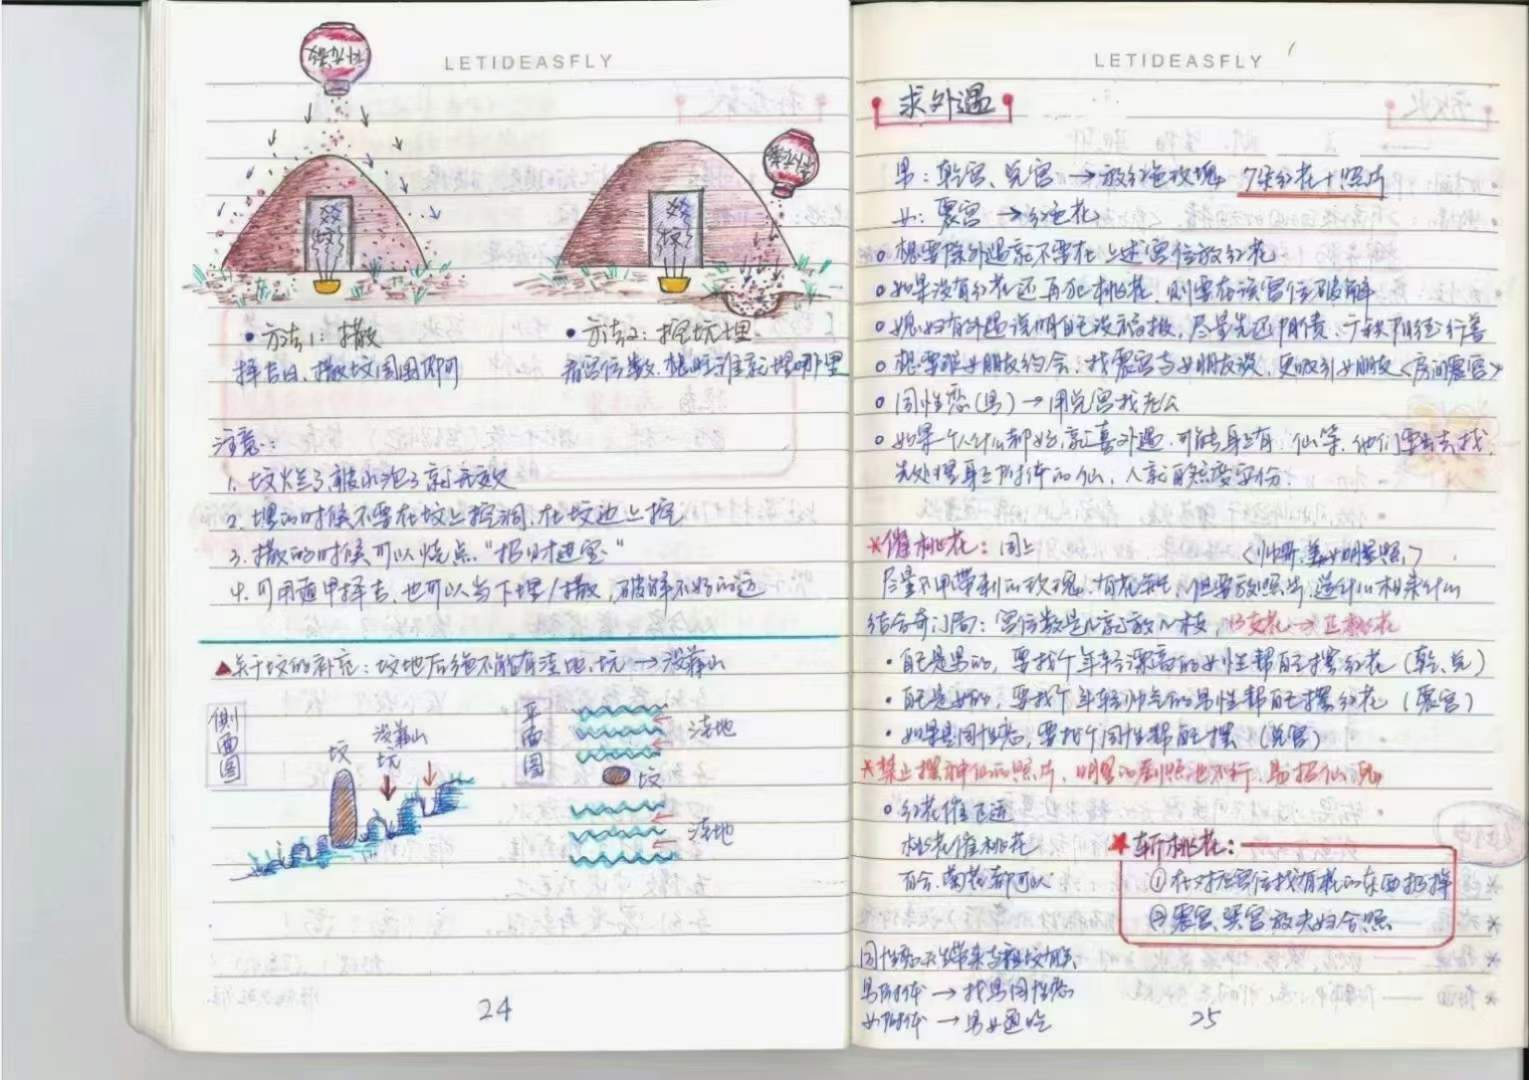 LETIDEASFLY
祖坟
祖坟
• 方法1：撒散
择吉日，撒坟周围即可
• 方法2：挖坑埋
看宫位数，想旺谁就埋哪里
注意：
1. 坟烂了被水泡了就无效
2. 埋的时候不要在坟上挖洞，在坟边上挖
3. 撒的时候可以烧点"招财进宝"
4. 可用遁甲择吉，也可以当下埋/撒，破解不好的运
▲关于坟的补充：坟地后绝不能有洼地、坑→没靠山
側面圖
坟
没靠山
坑
平面圖
洼地
坟
洼地
24
LETIDEASFLY
求外遇
男：乾宫、兑宫→放红色玫瑰 7朵红花+照片
女：震宫→红色花
○ 想要除外遇就不要在上述宫位放红花
○ 如果没有红花还再犯桃花，则要在该宫位破解
○ 媳妇有外遇说明自己没福报，尽量先还阴债、广积阴德行善
○ 想要跟女朋友约会，找震宫与女朋友谈，更吸引女朋友<房间震宫>
○ 同性恋(男)→用兑宫找老公
○ 如果一个人什么都好，就喜外遇，可能身上有仙等，他们要出去找，
先处理身上附体的仙，人就自然变安份
*催桃花：同上 <帅哥、美女明星照>
尽量不用带刺的玫瑰，有花无
，但要放照片，选什么相来什么
结合奇门局：宫位数是几就放几枝，13支花→正桃花
• 自己是男的，要找个年轻漂亮的女性帮自己摆红花（乾、兑）
• 自己是女的，要找个年轻帅气的男性帮自己摆红花（震宫）
• 如果是同性恋，要找个同性帮自己摆（兑宫）
*禁止摆神仙的照片，明星的剧照也不行，易招仙
○ 红花催正运
桃花催桃花
百合、菊花都可以
★斩桃花：
① 在对应宫位找有花的东西扔掉
② 震宫、巽宫放夫妇合照
同性恋天生带来与祖坟有关
男附体→找男同性恋
女附体→男女通吃
25